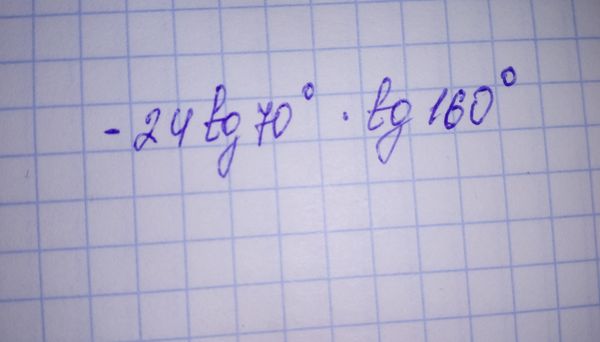 -24 tg 70° · tg 160°